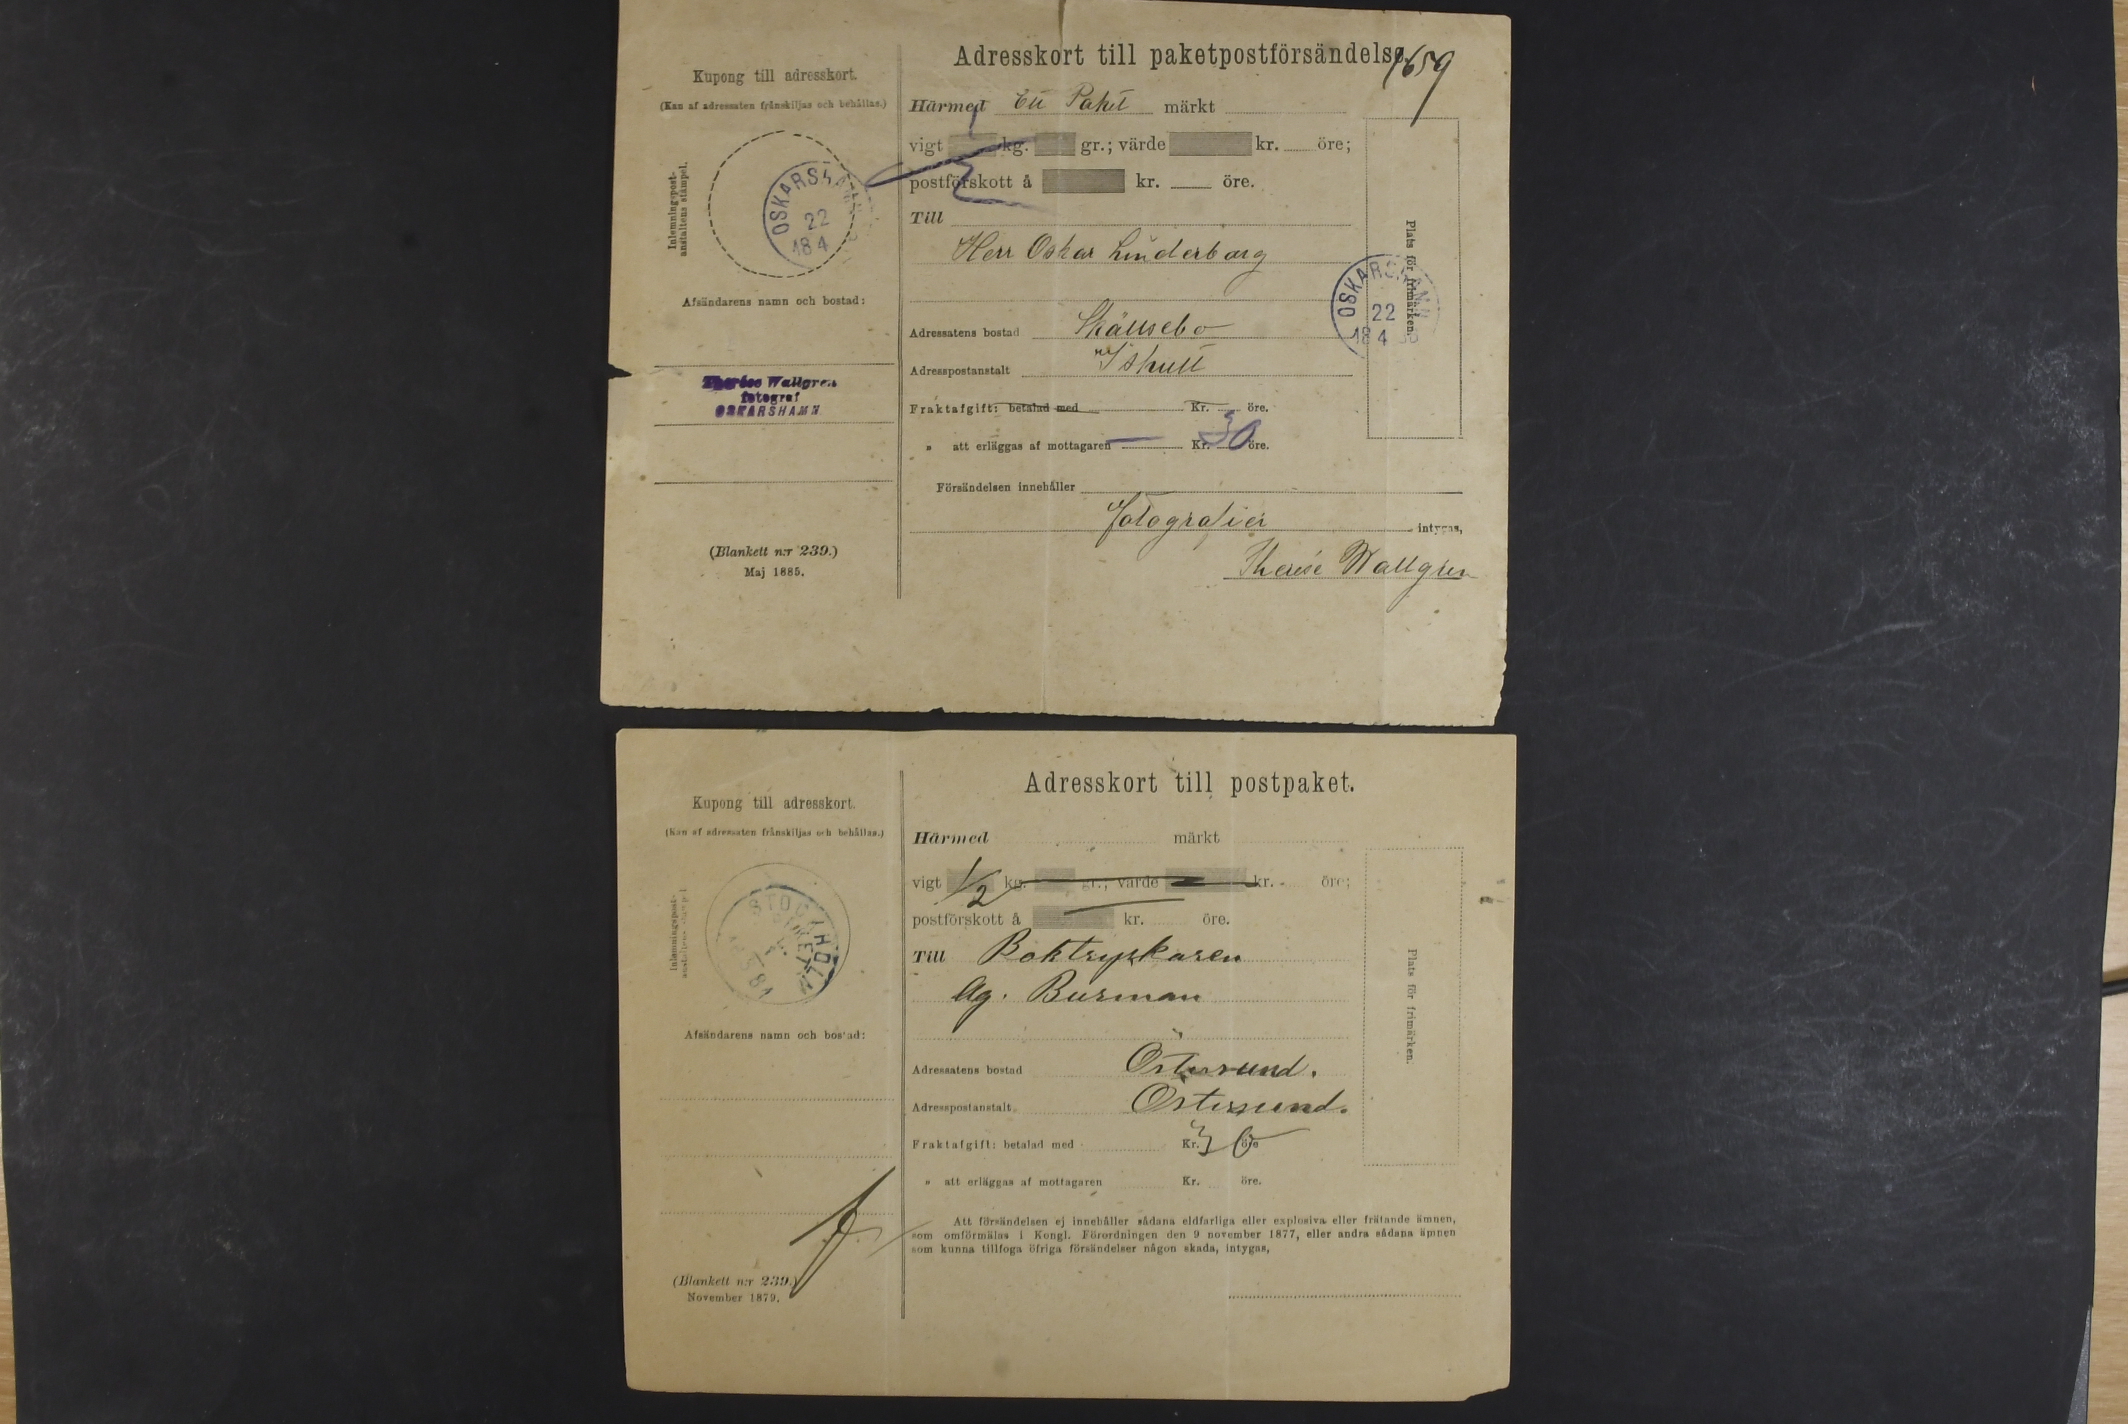 Adresskort till paketpostförsändelse.
1659
Kupong till adresskort.
(Kan af adressaten frånskiljas och behållas.)
Inlemningspost-
anstaltens stämpel.
OSKARSHAMN
22
18 4
Afsändarens namn och bostad:
Therése Wallgren
fotograf
OSKARSHAMN
(Blankett n:r 239.)
Maj 1885.
Härmed Ett Paket märkt
vigt kg. gr.; värde kr. öre;
postförskott à kr. öre.
Till
Herr Oskar Linderborg
Adressatens bostad
Adresspostanstalt
Fraktafgift: betalad med Kr. öre.
„ att erläggas af mottagaren Kr. 30 öre.
Försändelsen innehåller
fotografier intygas,
Therése Wallgren
Plats för frimärken.
OSKARSHAMN
22
18 4
Adresskort till postpaket.
Kupong till adresskort.
(Kan af adressaten frånskiljas och behållas.)
Inlemningspost-
anstaltens stämpel
STOCKHOLM
Afsändarens namn och bostad:
(Blankett n:r 239.)
November 1879.
Härmed märkt
vigt 1/2 kg. gr.; värde kr. öre;
postförskott à kr. öre.
Till Boktryckaren
Ag. Burman
Adressatens bostad Östersund.
Adresspostanstalt Östersund.
Fraktafgift: betalad med Kr. 30 öre
„ att erläggas af mottagaren Kr. öre.
Att försändelsen ej innehåller sådana eldfarliga eller explosiva eller frätande ämnen,
som omförmälas i Kongl. Förordningen den 9 november 1877, eller andra sådana ämnen
som kunna tillfoga öfriga försändelser någon skada, intygas,
Plats för frimärken.